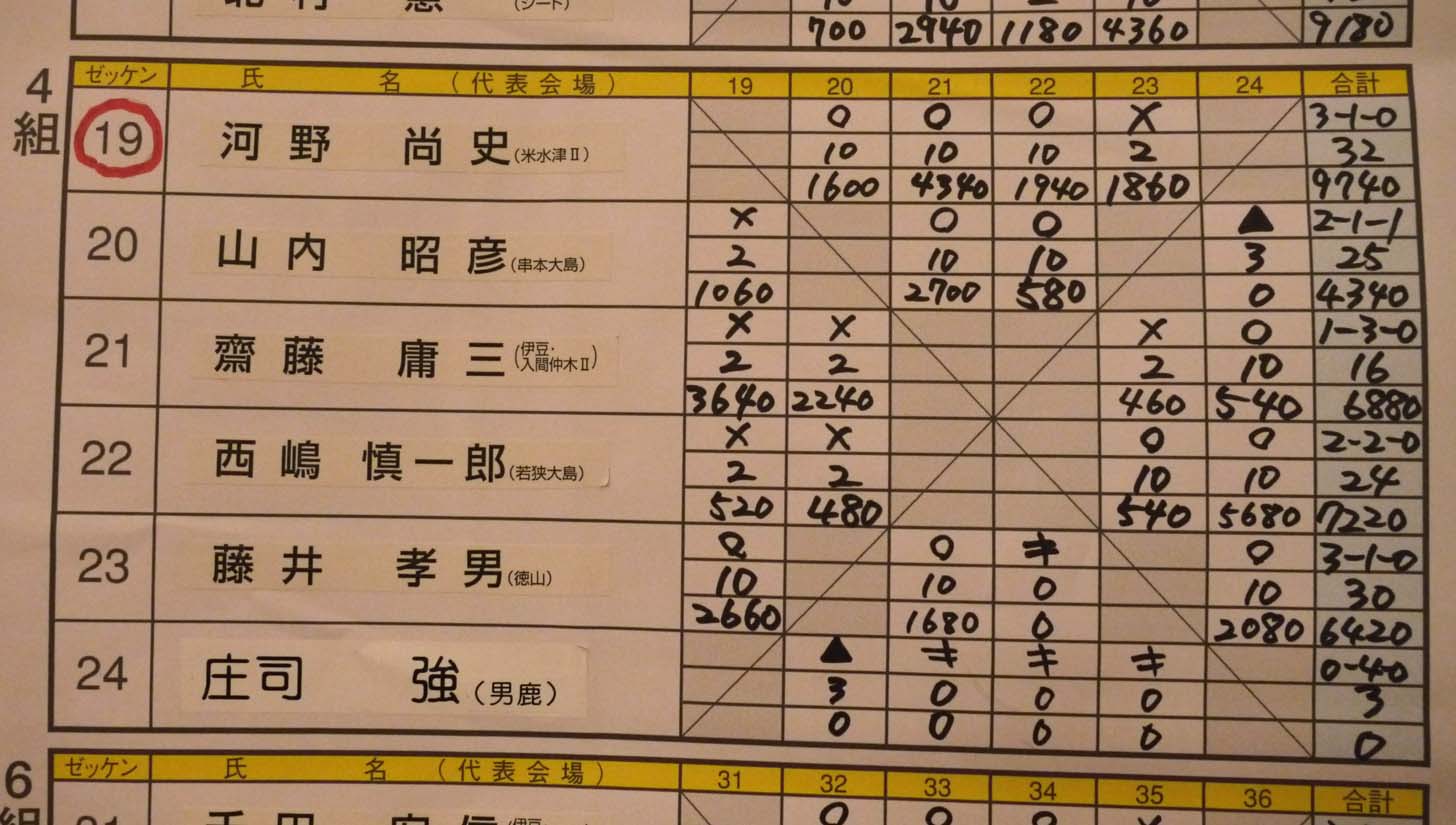 700 2940 1180 4360 9180
4組
ゼッケン 氏 名 (代表会場) 19 20 21 22 23 24 合計
○ ○ ○ × 3-1-0
19 河野 尚史 (米水津Ⅱ) 10 10 10 2 32
1600 4340 1940 1860 9740
× ○ ○ ▲ 2-1-1
20 山内 昭彦 (串本大島) 2 10 10 3 25
1060 2700 580 0 4340
× × × ○ 1-3-0
21 齋藤 庸三 (伊豆・入間仲木Ⅱ) 2 2 2 10 16
3640 2240 460 540 6880
× × ○ ○ 2-2-0
22 西嶋 慎一郎 (若狭大島) 2 2 10 10 24
520 480 540 5680 7220
○ ○ キ ○ 3-1-0
23 藤井 孝男 (徳山) 10 10 0 10 30
2660 1680 0 2080 6420
▲ キ キ キ 0-4-0
24 庄司 強 (男鹿) 3 0 0 0 3
0 0 0 0 0
6組
ゼッケン 氏 名 (代表会場) 31 32 33 34 35 36 合計